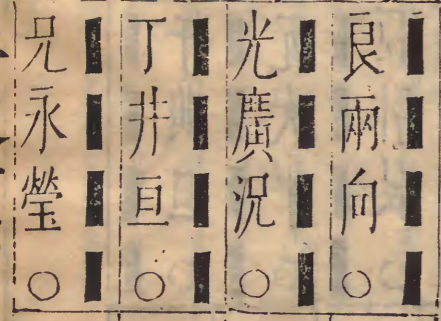 ■■■■
良兩向○
■■■■
光廣況○
■■■■
丁井亘○
■■■■
兄永瑩○